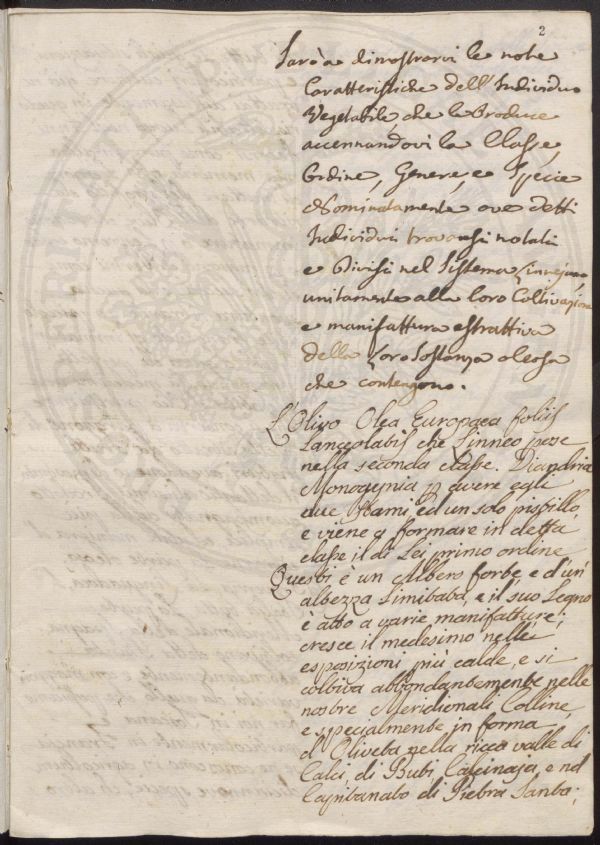 2
Sarò a dimostrarvi le note
Caratteristiche dell'Individuo
Vegetabile, che le Produce
accennandovi la Classe,
Ordine, Genere, e Specie
Nominatamente ove detti
Individui trovansi notati
e Divisi nel Sistema Linnejano
unitamente alla loro Coltivazione
e manifattura estrattiva
della Loro Sostanza oleosa
che contengono.
L'Olivo Olea Europaea foliis
Lanceolatis che Linneo pose
nella seconda classe. Diandria
Monogynia p avere egli
due Stami, ed un solo pistillo,
e viene a formare in detta
classe il di Lei primo ordine
Questi è un Albero forte, e d'un'
altezza Limitata, e il suo Legno
è atto a varie manifatture;
cresce il medesimo nelle
esposizioni più calde, e si
coltiva abbondantemente nelle
nostre Meridionali Colline,
e specialmente in forma
d'Oliveta nella ricca valle di
Calci, di Buti, Calcinaja, e nel
Capitanato di Pietra Santa;